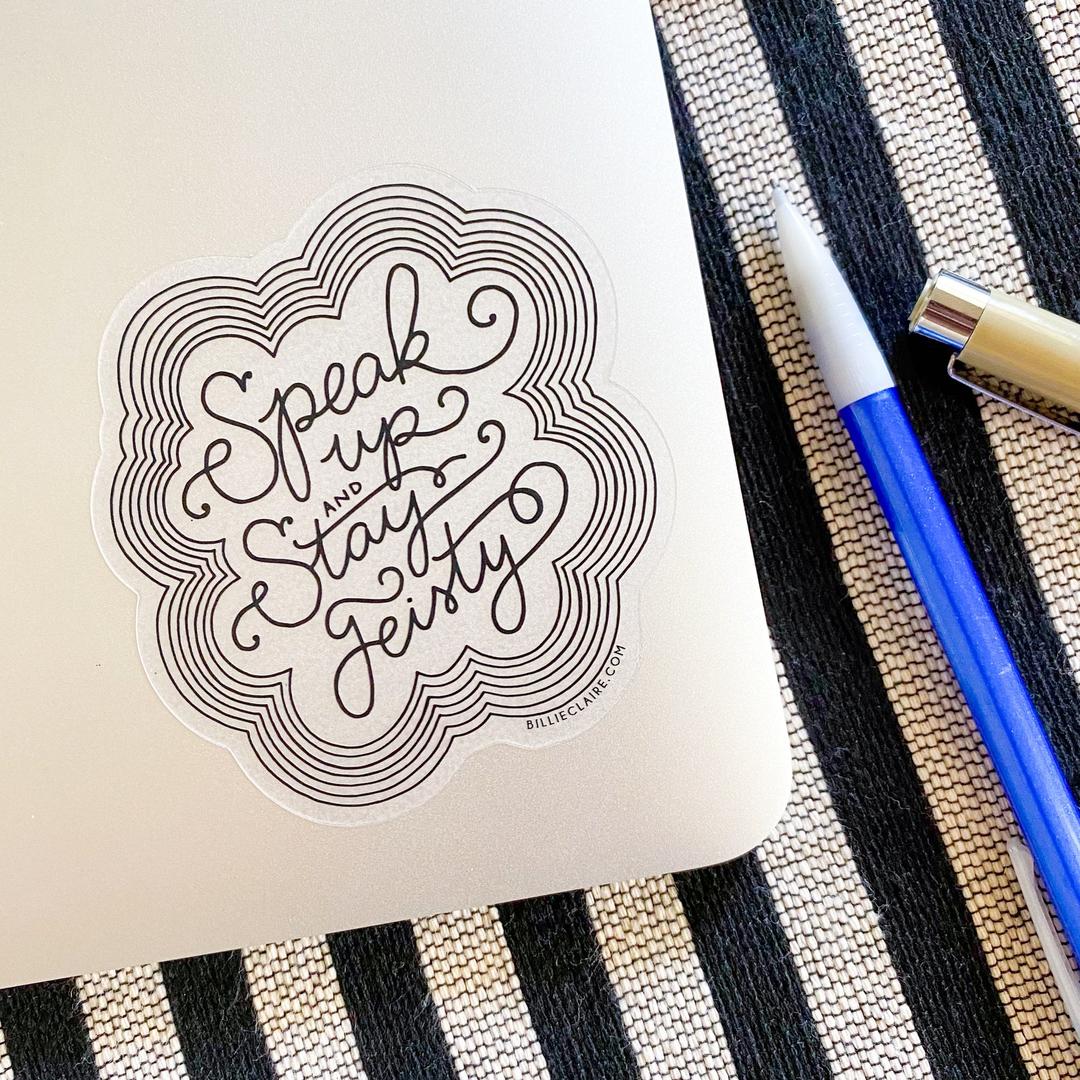 Speak
up
AND
Stay
feisty
BILLIECLAIRE.COM